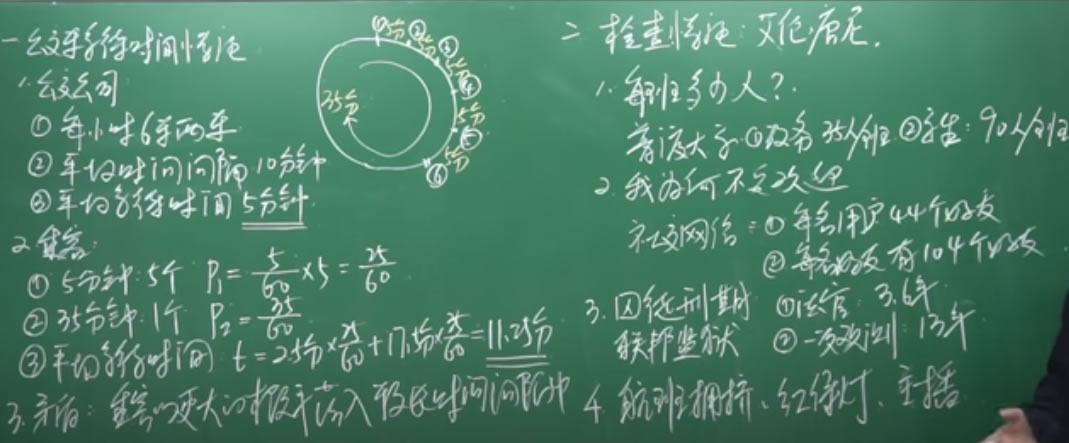 一 公交车等待时间悖论
1. 公交公司
① 每小时6辆车
② 平均时间间隔10分钟
③ 平均等待时间5分钟
① 5分 ②
5分 ③
5分 ④
5分 ⑤
5分 ⑥
35分
2. 乘客:
① 5分钟: 5个 P₁ = 5/60 × 5 = 25/60
② 35分钟: 1个 P₂ = 35/60
③ 平均等待时间 t = 2.5分 × 25/60 + 17.5分 × 35/60 = 11.25分
3. 矛盾: 乘客以更大的概率落入较长时间间隔中
二 检查悖论: 艾伦·唐尼.
1. 每班多少人?
普渡大学 ① 教务 35人/班 ② 学生: 90人/班
2. 我为何不受欢迎
社交网络: ① 每名用户44个好友
② 每名好友有104个好友
3. 囚徒刑期 ① 法官: 3.6年
联邦监狱 ② 一次 : 13年
4. 航班拥挤、红绿灯、主播